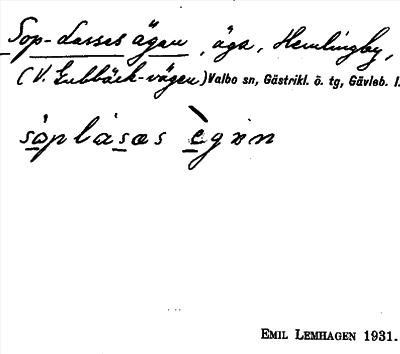 Sop-Lasses ägen, äga, Hemlingby,
(V. Gubbäck-vägen) Valbo sn, Gästrikl. ö. tg, Gävleb. l.
sòplásæs ègən
EMIL LEMHAGEN 1931.